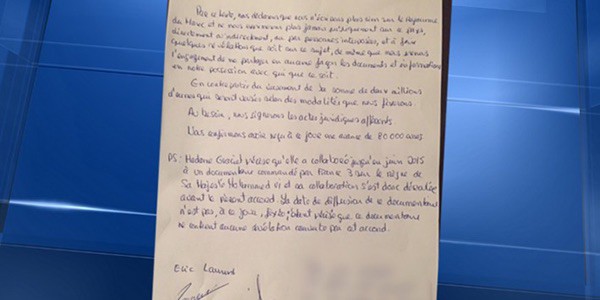 Par ce texte, nous déclarons que nous n'écrirons plus rien sur le Royaume
du Maroc et ne nous exprimerons plus jamais publiquement sur ce pays,
directement ou indirectement, ou par personnes interposées, et à faire
quelques révélations que ce soit sur ce sujet, de même que nous prenons
l'engagement de ne partager en aucune façon les documents et informations
en notre possession avec qui que ce soit.
En contrepartie du versement de la somme de deux millions
d'euros qui seront versés selon des modalités que nous fixerons.
Au besoin, nous signerons les actes juridiques afférents
Nous confirmons avoir reçu à ce jour une avance de 80 000 euros
PS : Madame Graciet précise qu'elle a collaboré jusqu'en juin 2015
à un documentaire commandé par France 3 sur le règne de
Sa Majesté Mohammed VI et sa collaboration s'est donc déroulée
avant le présent accord. La date de diffusion de ce documentaire
n'est pas, à ce jour, fixée; étant précisé que ce documentaire
ne contient aucune révélation couverte par cet accord.
Eric Laurent